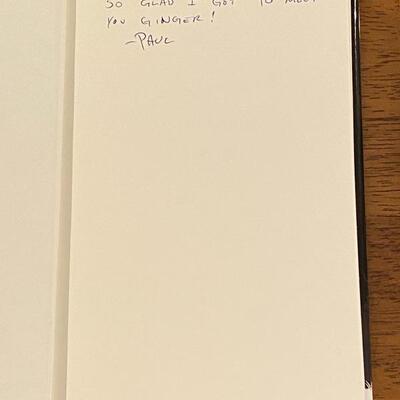 SO GLAD I GOT TO MEET
YOU GINGER!
-PAUL